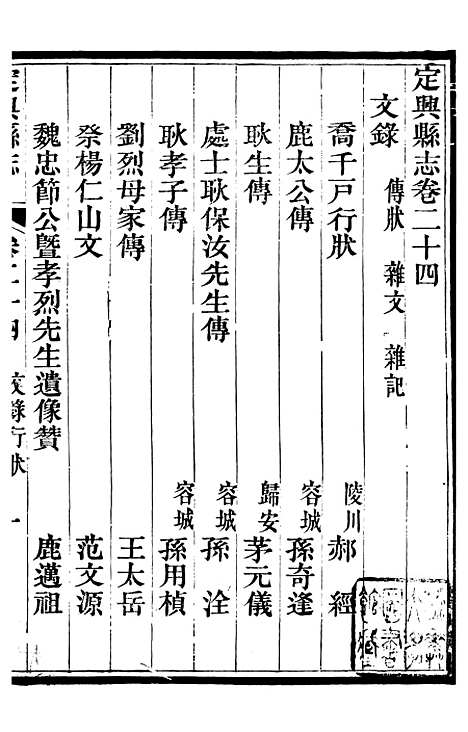 定興縣志卷二十四
文錄 傳狀 雜文 雜記
喬千戸行狀 陵川 郝經
鹿太公傳 容城 孫奇逢
耿生傳 歸安 茅元儀
處士耿保汝先生傳 容城 孫洤
耿孝子傳 容城 孫用楨
劉烈母家傳 王太岳
祭楊仁山文 范文源
魏忠節公暨孝烈先生遺像贊 鹿邁祖
定興縣志 卷二十四 文錄行狀 一